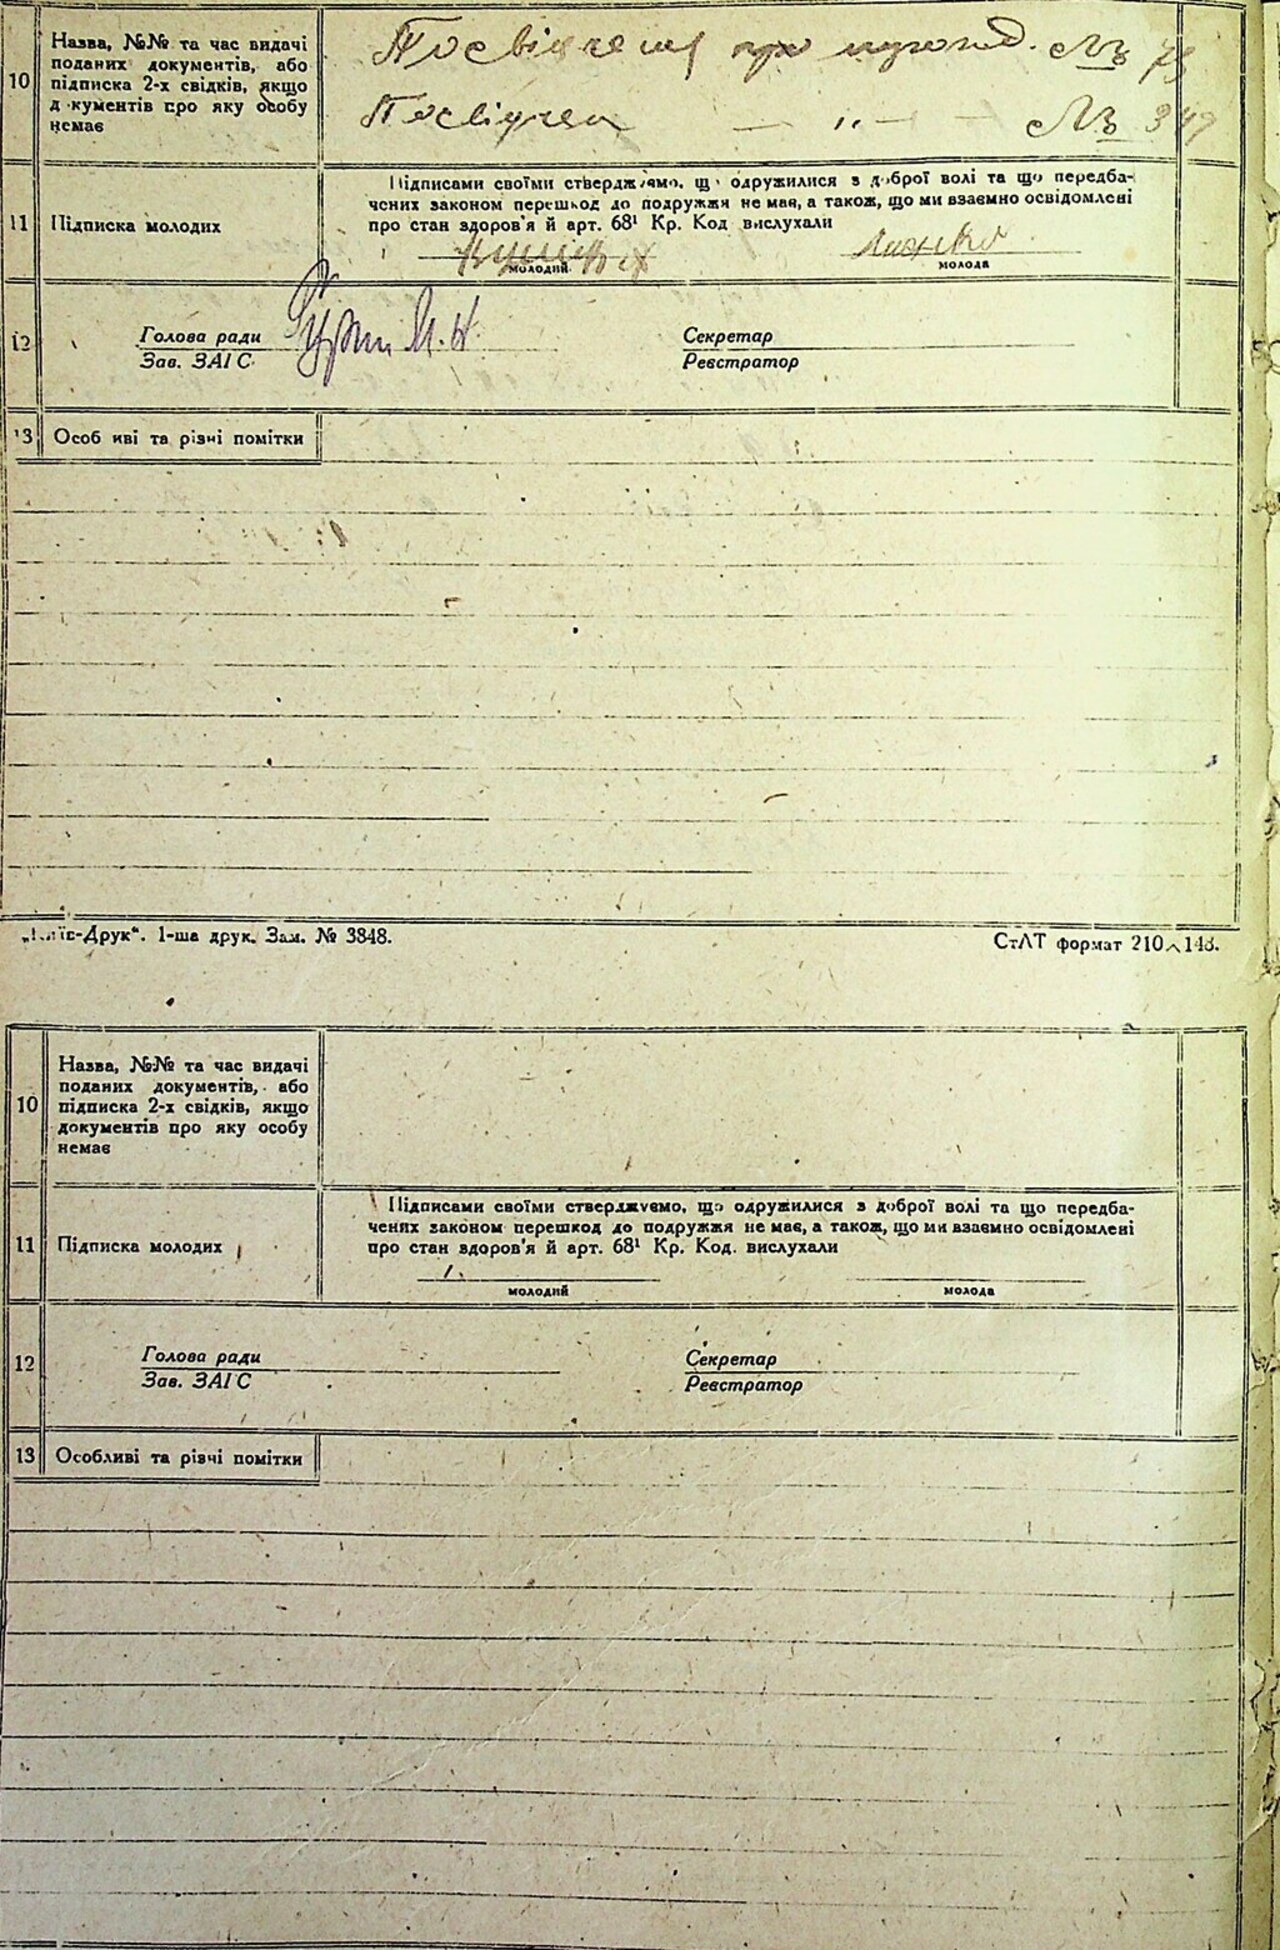 Назва, №№ та час видачі
поданих документів, або
10 підписка 2-х свідків, якщо
д кументів про яку особу
немає
Посвідчення про народ. № 73
Посвідчен — „ — № 349
Підписами своїми стверджуємо, що одружилися з доброї волі та що передба-
чених законом перешкод до подружжя не має, а також, що ми взаємно освідомлені
11 Підписка молодих про стан здоров'я й арт. 68¹ Кр. Код вислухали
молодий молода
12 Голова ради Секретар
Зав. ЗАГС Реєстратор
13 Особ иві та різні помітки
„Київ-Друк“. 1-ша друк. Зам. № 3848. СтАТ формат 210×148.
Назва, №№ та час видачі
поданих документів, або
10 підписка 2-х свідків, якщо
документів про яку особу
немає
Підписами своїми стверджуємо, що одружилися з доброї волі та що передба-
чених законом перешкод до подружжя не має, а також, що ми взаємно освідомлені
11 Підписка молодих про стан здоров'я й арт. 68¹ Кр. Код. вислухали
молодий молода
12 Голова ради Секретар
Зав. ЗАГС Реєстратор
13 Особливі та різні помітки